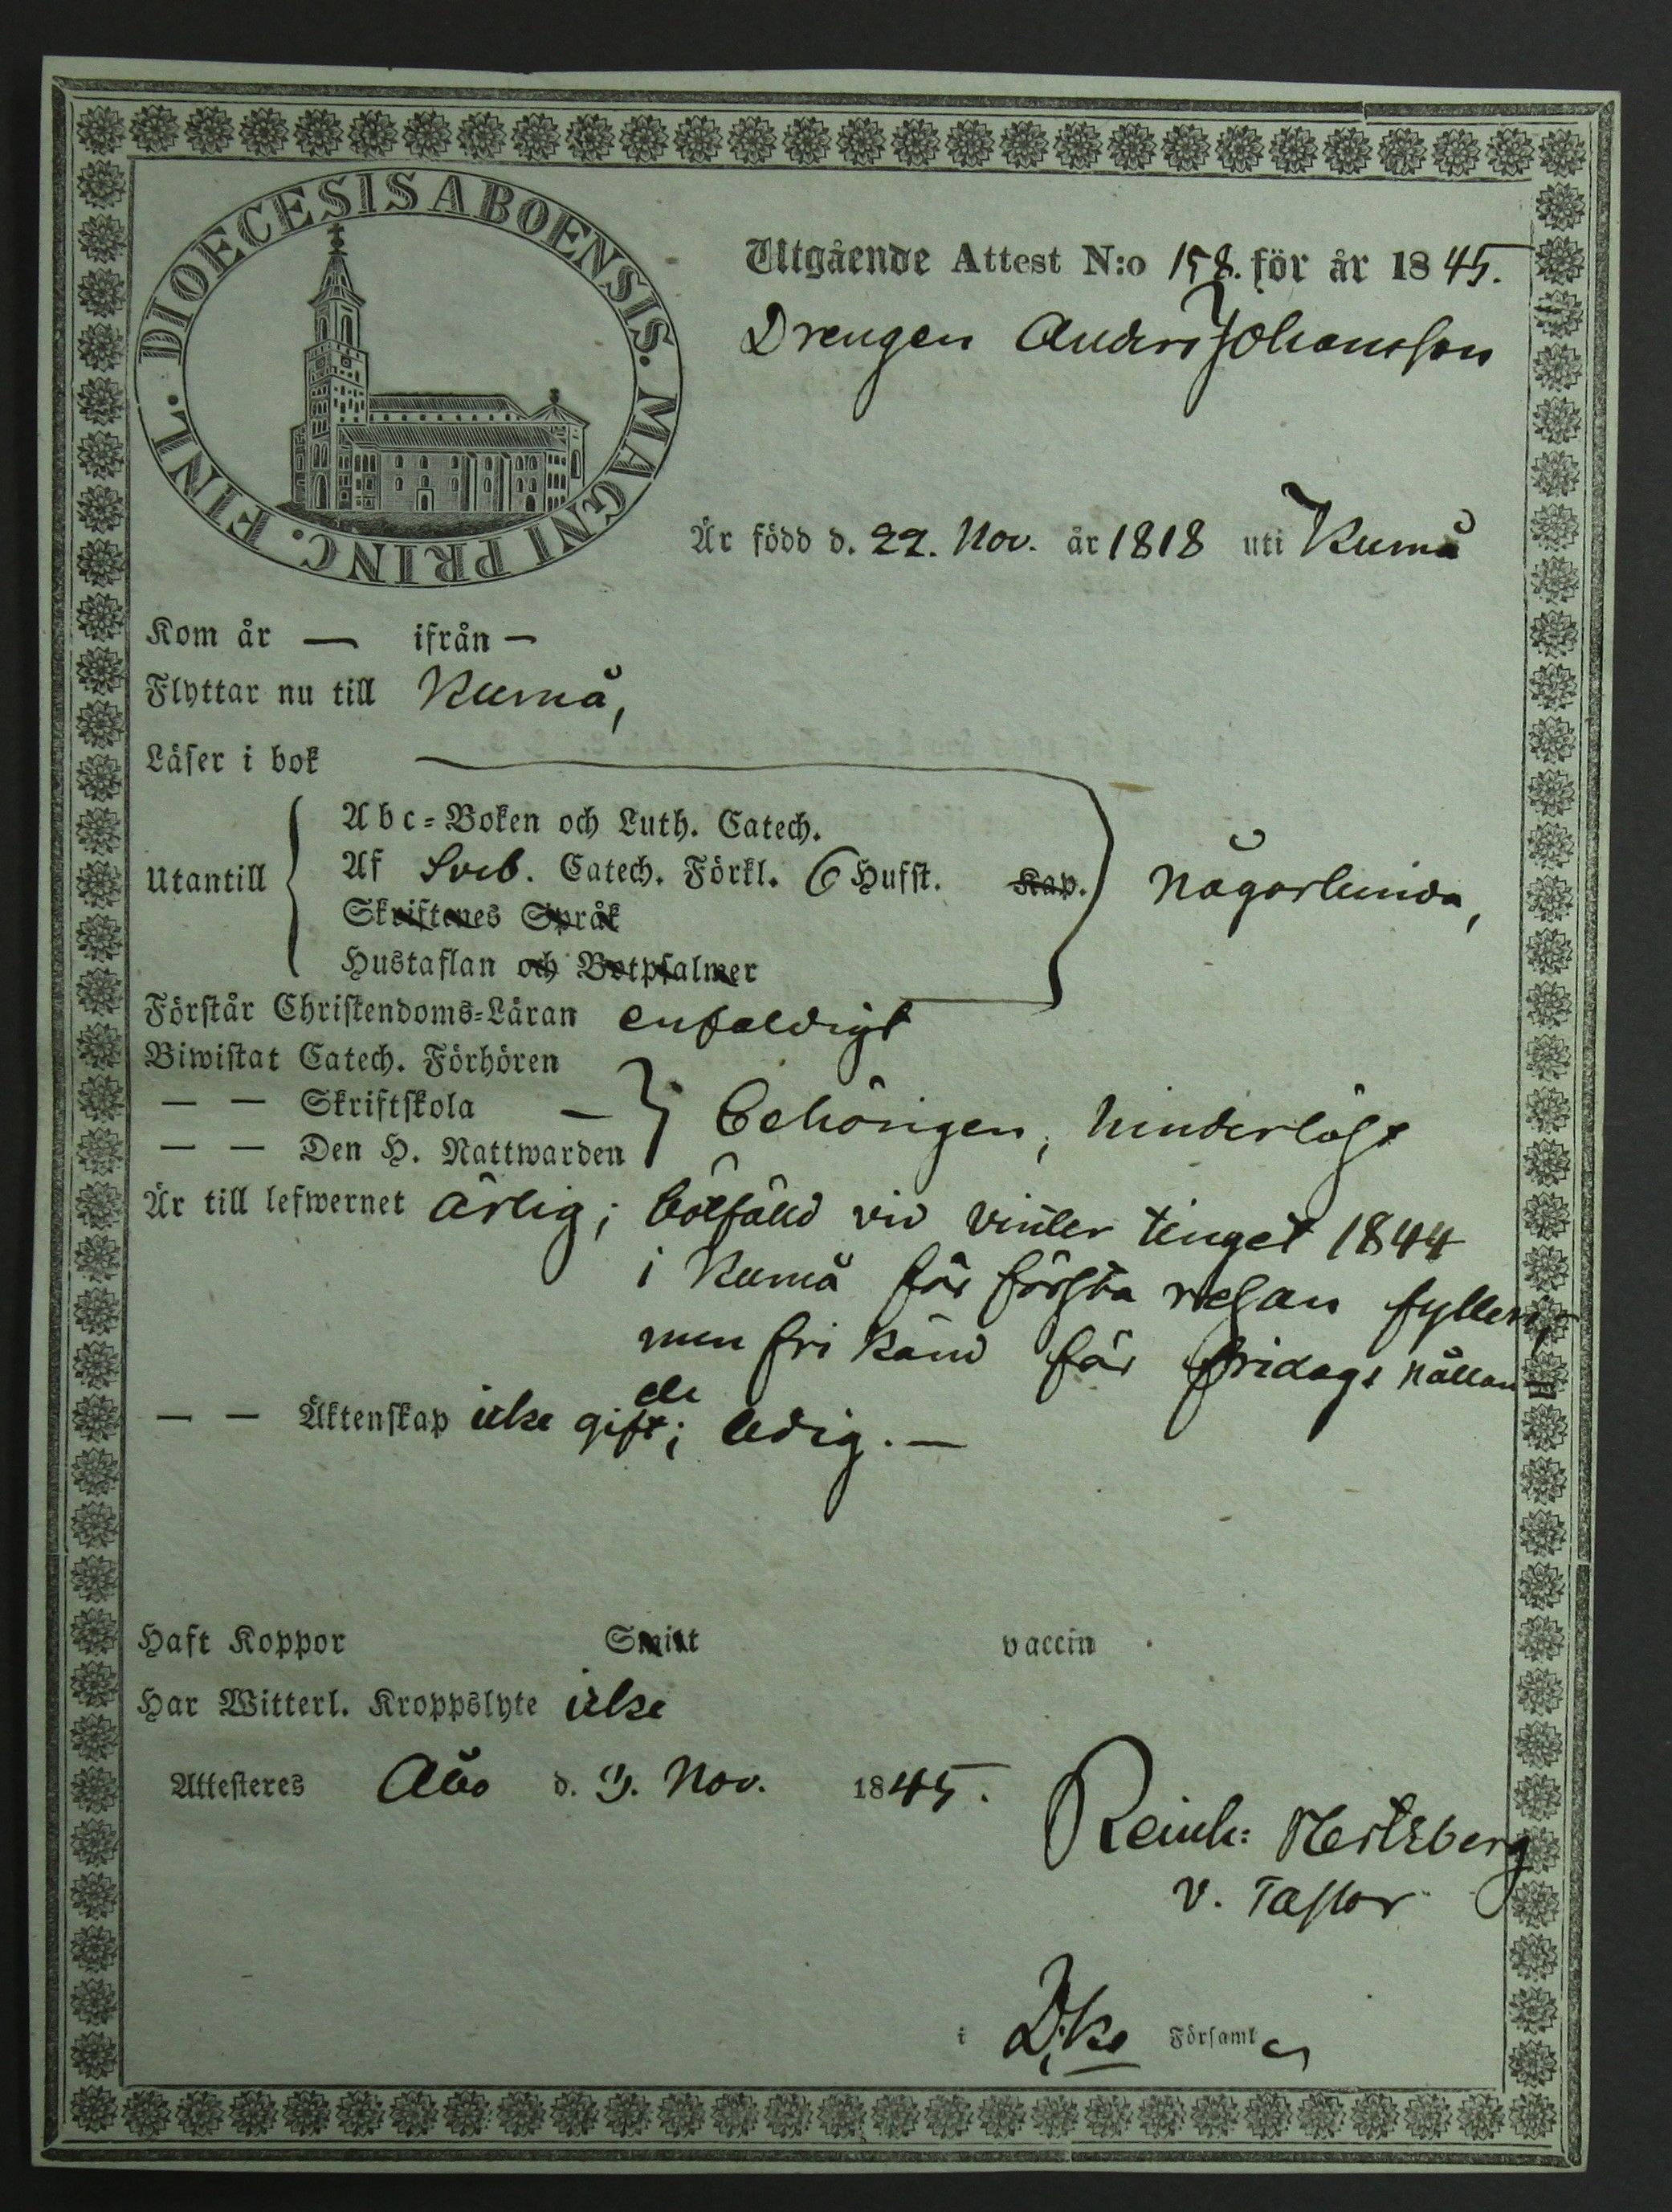 DIOECESIS ABOENSIS. MAGNI PRINC. FINL.
Utgående Attest N:o 158. för år 1845.
Drengen Anders Johansson
Är född d. 22. Nov. år 1818 uti Kumå
Kom år — ifrån —
Flyttar nu till Kumå,
Läser i bok
Utantill
Abc-Boken och Luth. Catech.
Af Sveb. Catech. Förkl. 6 Hufst. Kap.
Skriftenes Språk
Hustaflan och Botpsalmer
någorlunda,
Förstår Christendoms-Läran enfaldigt
Biwistat Catech. Förhören
— — Skriftskola —
— — Den H. Nattwarden
behörigen, hinderlöst
Är till lefwernet ärlig; botfäld vid vinter tinget 1844
i Kumå för första resan fylleri,
men fri känd för fridags
— — Äktenskap icke gift; ledig. —
Haft Koppor Smitt vaccin
Har Witterl. Kroppslyte icke
Attesteres Åbo d. 9. Nov. 1845.
Reinh: Hertzberg
v. Pastor
i D:ke Församl